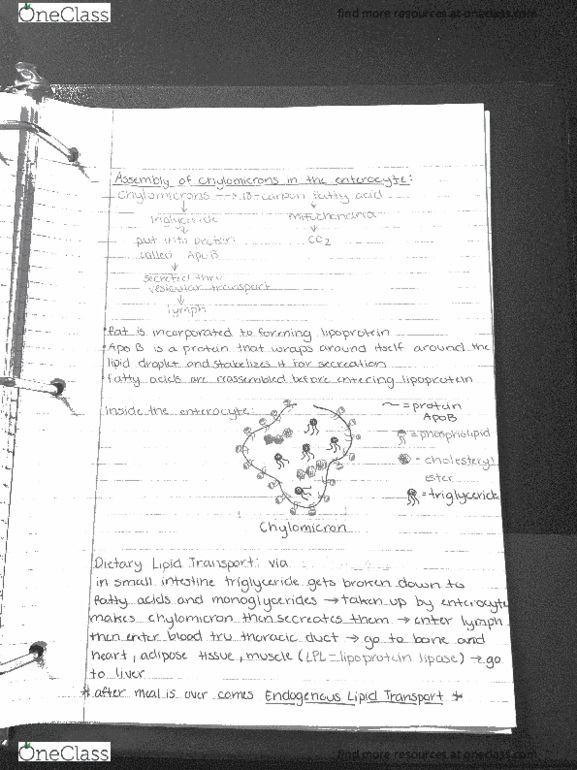 OneClass
find more resources at oneclass.com
Assembly of chylomicrons in the enterocyte:
Chylomicrons → 18-carbon fatty acid
↓ ↓
triglyceride mitochondria
↓ ↓
put with protein CO2
called ApoB
↓
secreted thru
vesicular transport
↓
lymph
fat is incorporated to forening lipoprotein
Apo B is a protein that wraps around itself around the
lipid droplet and stabelizes it for secreation
fatty acids are reassembled before entering lipoprotein
Inside the enterocyte:
= protein
ApoB
= phospholipid
= cholesteryl
Ester
= triglyceride
Chylomicron
Dietary Lipid Transport: via
in small intestine triglyceride gets broken down to
fatty acids and monoglycerides → taken up by enterocyte
makes chylomicron then secreates them → enter lymph
then enter blood tru thoracic duct → go to bone and
heart, adipose tissue, muscle (LPL = lipoprotein lipase) → go
to liver
* after meal is over comes Endogenous Lipid Transport *
OneClass
find more resources at oneclass.com